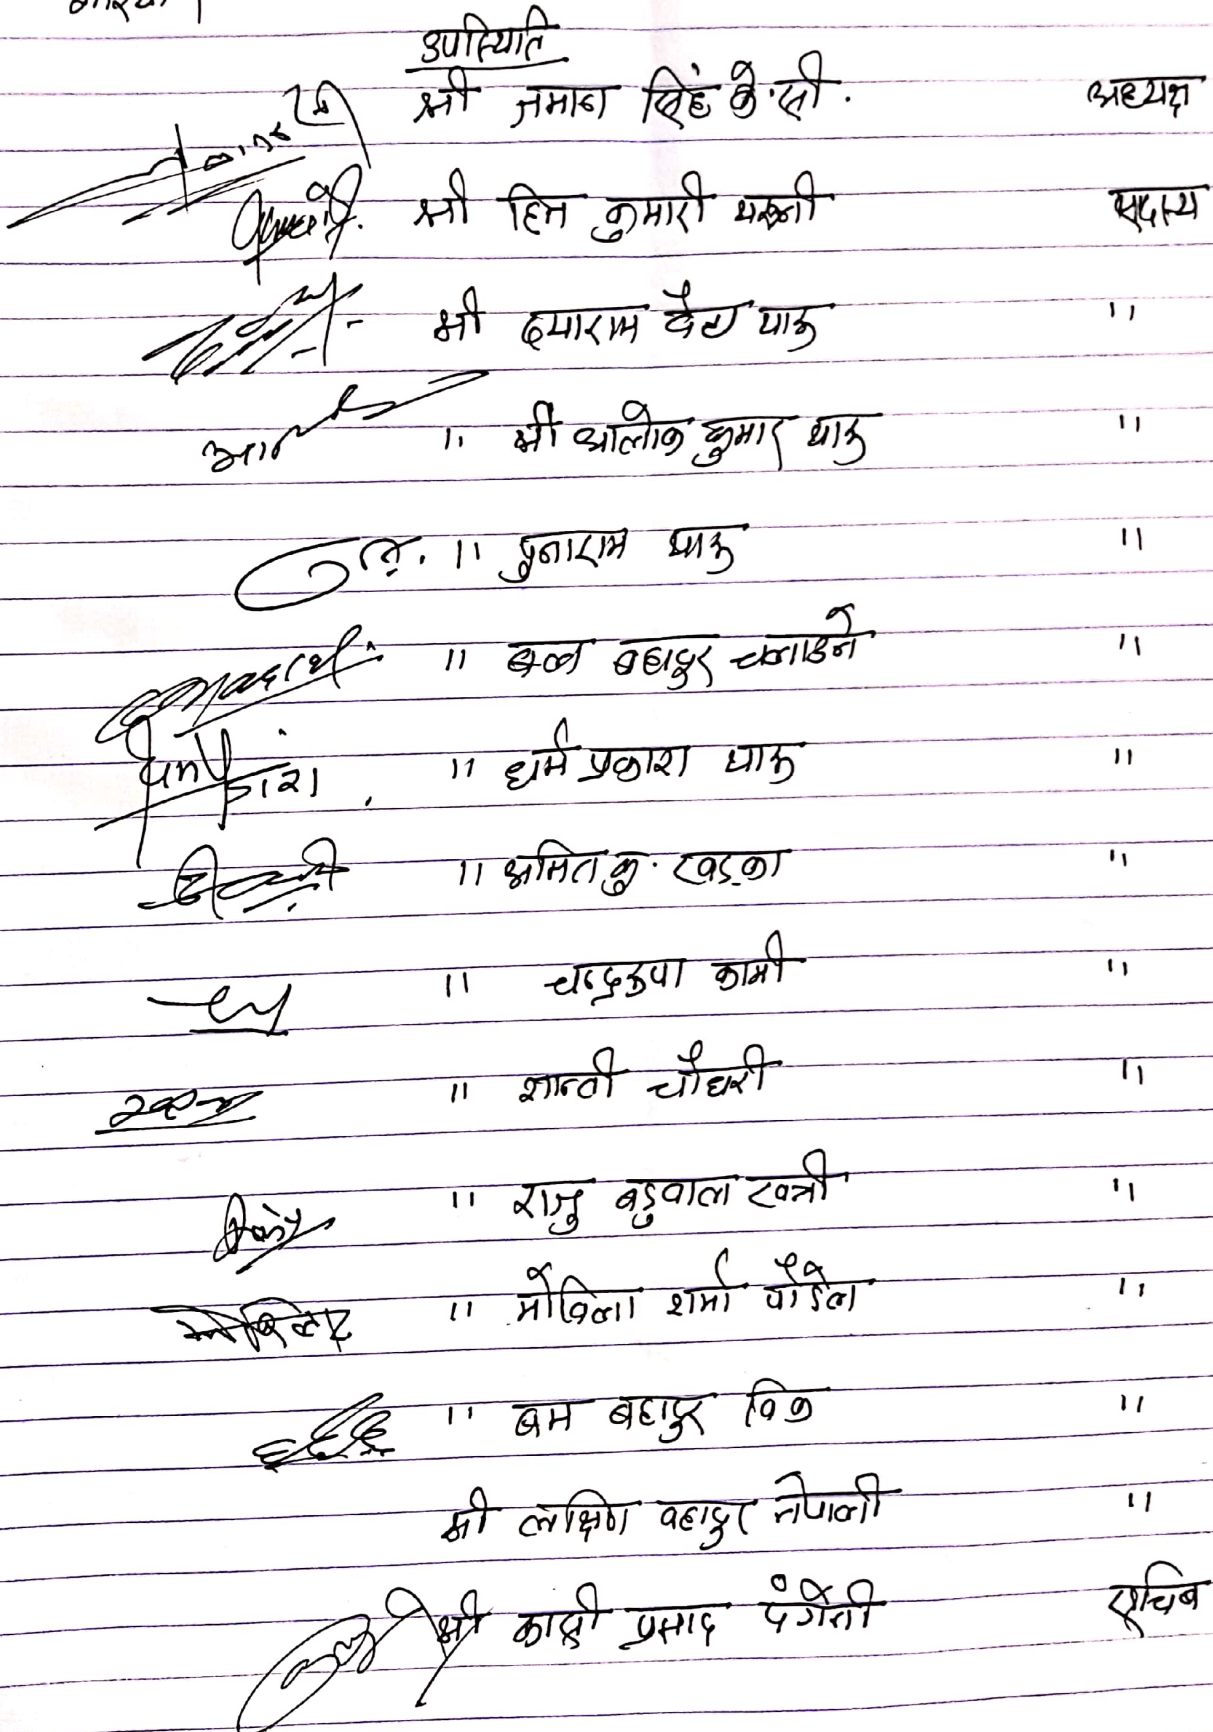 उपस्थिति
श्री जमान सिंह के.सी. अध्यक्ष
श्री हिम कुमारी सदस्य
श्री दयाराम थारू "
" श्री आलोक कुमार थारू "
" पुनाराम थारू "
" बल बहादुर "
" धर्म प्रकाश थारू "
" अमित कु. खड्का "
" चन्द्ररुपा कामी "
" शान्ती चौधरी "
" राजु बडुवाल खत्री "
" शर्मा पौडेल "
" बम बहादुर विक "
श्री लक्षिण बहादुर नेपाली "
श्री काशी प्रसाद दंगेती सचिब